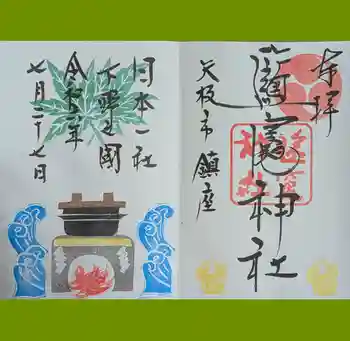 奉拝
鹽竈神社
矢板市 鎮座
日本一社
下野之國
令和年
七月二十七日